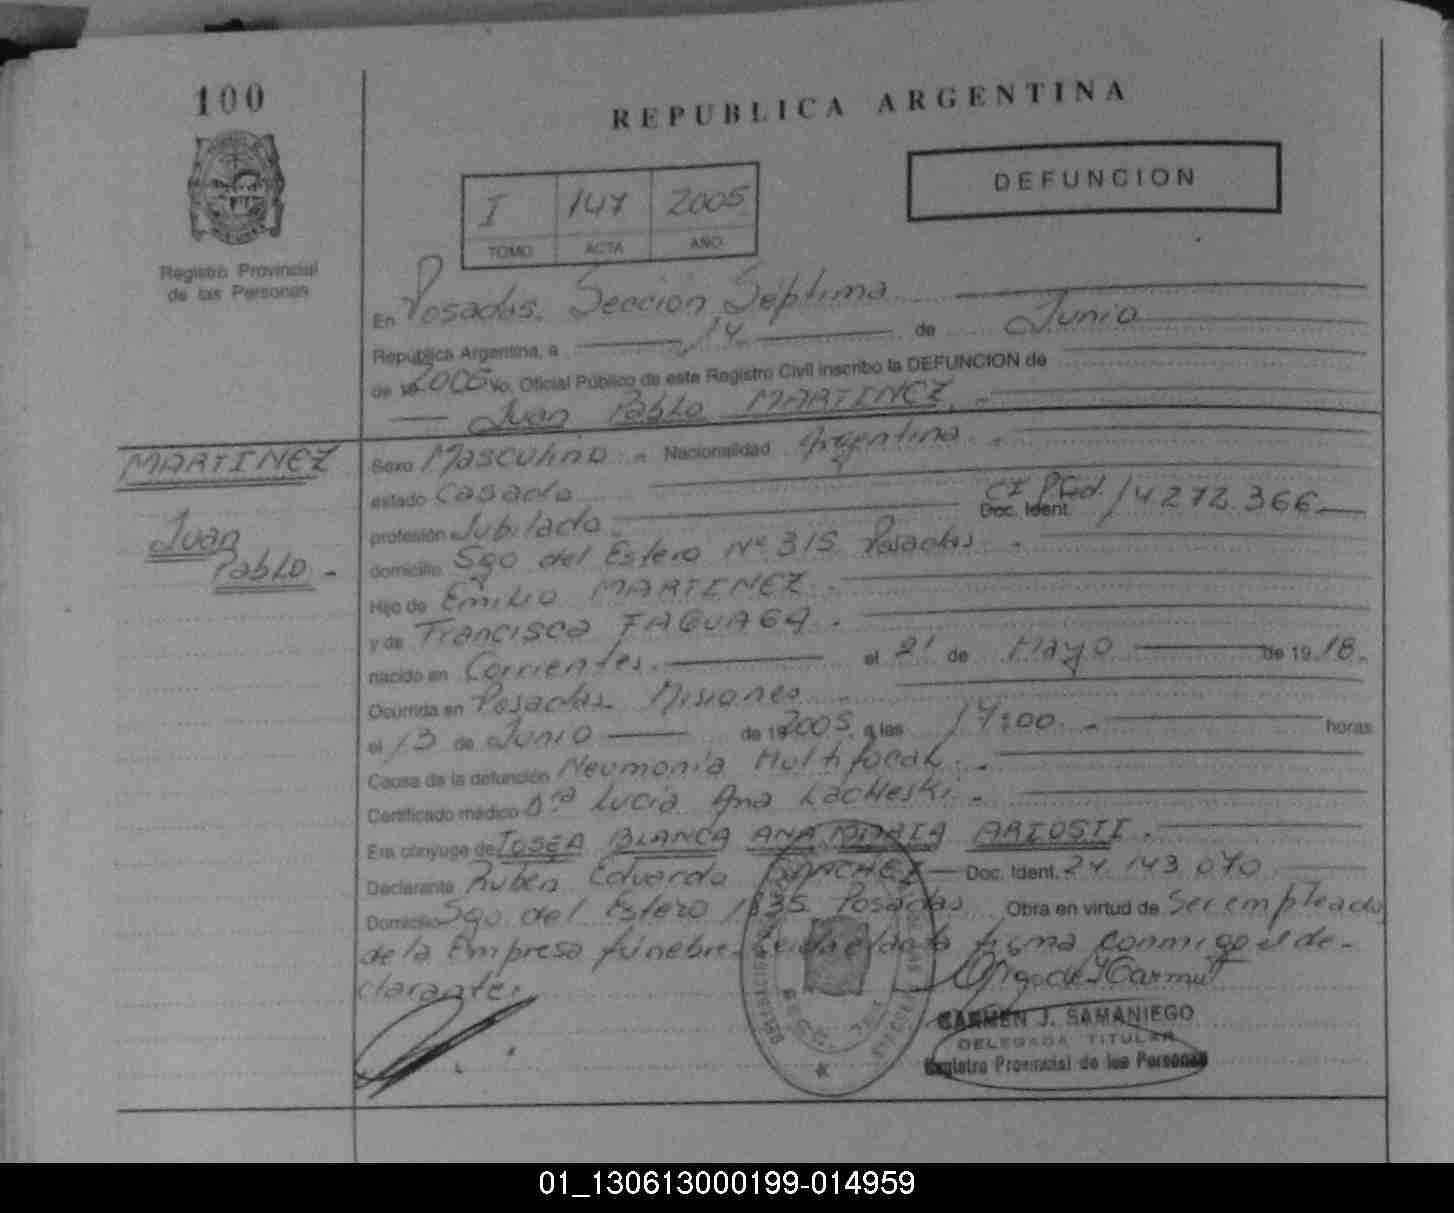 100
REPUBLICA ARGENTINA
DEFUNCION
I 147 2005
TOMO ACTA AÑO
Registro Provincial
de las Personas
En Posadas. Sección Séptima
República Argentina, a 14 de Junio
de 2005 Yo, Oficial Público de este Registro Civil inscribo la DEFUNCION de
Juan Pablo MARTINEZ.
MARTINEZ
Juan
Pablo
Sexo Masculino Nacionalidad Argentina
estado Casado
profesión Jubilado Doc. Ident. CI 14.272.366
domicilio Sgo del Estero Nº 315 Posadas
Hijo de Emilio MARTINEZ
y de Francisca
nacido en Corrientes. el 21 de Mayo de 1918.
Ocurrida en Posadas. Misiones
el 13 de Junio de 192005, a las horas
Causa de la defunción Neumonía Multifocal
Certificado médico Dra Lucia Ana
Era cónyuge de BLANCA ANA MARIA
Declarante Ruben Eduardo SANCHEZ Doc. Ident. 24.143.070
Domicilio Sgo. del Estero Posadas Obra en virtud de Ser empleado
de la Empresa fúnebre. Leida el acta firma conmigo el de-
clarante.
CARMEN J. SAMANIEGO
DELEGADA TITULAR
Registro Provincial de las Personas
01_130613000199-014959